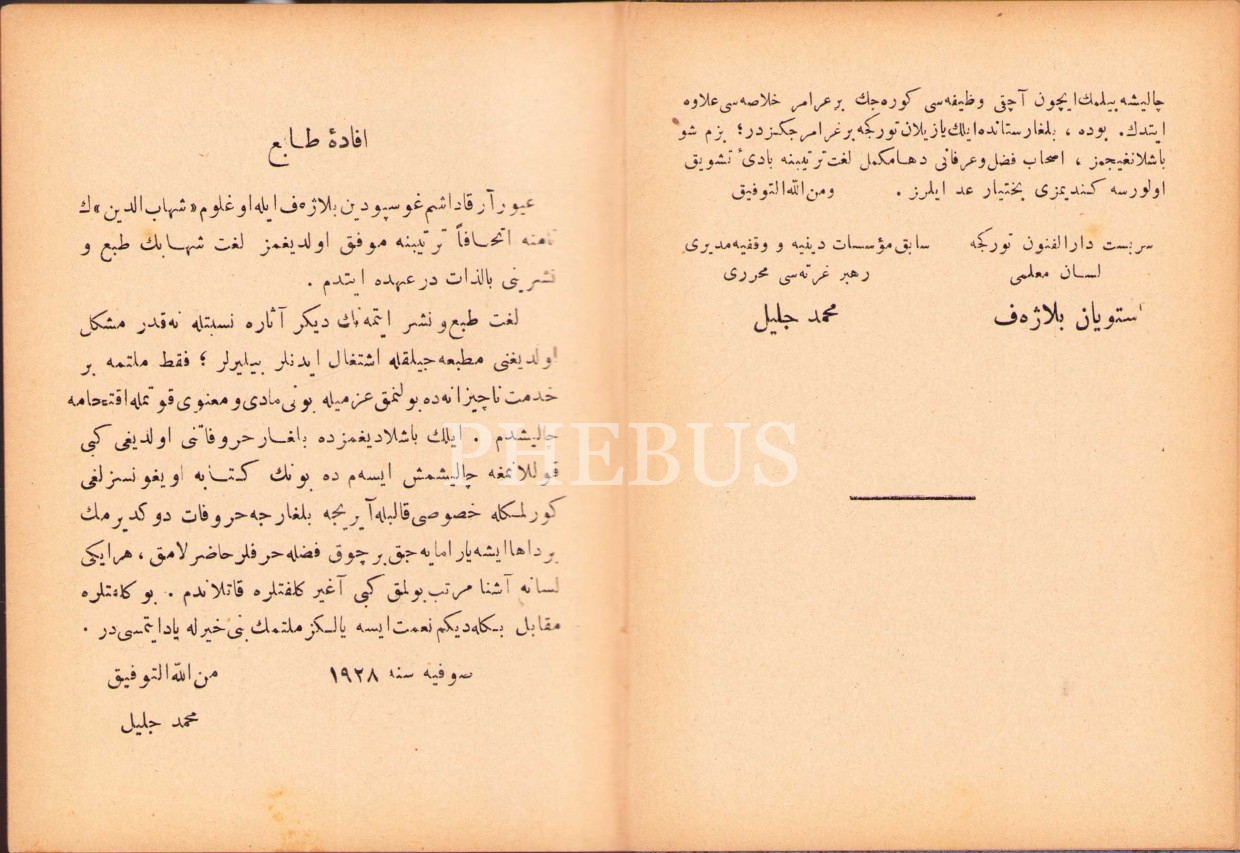 چالیشه بیلمك ایچون آچقی وظیفه سی كوره جك بر غرامر خلاصه سی علاوه
ایتدك. بوده ، بلغارستانده ایلك یازیلان توركجه بر غرامر جكزدر؛ بزم شو
باشلانغیجمز ، اصحاب فضل و عرفانی دها مكمل لغت ترتیبنه بادیٔ تشویق
اولورسه كندیمزی بختیار عد ایلرز . ومن الله التوفیق
سربست دارالفنون توركجه سابق مؤسسات دینیه و وقفیه مدیری
لسان معلمی رهبر غزته سی محرری
استویان بلاژەف محمد جلیل
افادهٔ طابع
غیور آرقاداشم غوسپودین بلاژەف ایله اوغلوم «شهاب الدین» ك
نامنه اتحافاً ترتیبنه موفق اولدیغمز لغت شهابك طبع و
نشرینی بالذات درعهده ایتدم .
لغت طبع و نشر ایتمه نك دیكر آثاره نسبتله نه قدر مشكل
اولدیغنی مطبعه جیلقله اشتغال ایدنلر بیلیرلر ؛ فقط ملتمه بر
خدمت ناچیزانه ده بولنمق عزمیله بونی مادی و معنوی قوتمله اقتحامه
چالیشدم . ایلك باشلادیغمزده بلغار حروفاتنی اولدیغی كبی
قوللانمغه چالیشمش ایسه م ده بونك كتابه اویغونسزلغی
كورلمكله خصوصی قالبله آیریجه بلغارجه حروفات دوكدیرمك
بر داها ایشه یارامایه جق بر چوق فضله حرفلر حاضرلامق ، هر ایكی
لسانه آشنا مرتب بولمق كبی آغیر كلفتلره قاتلاندم . بو كلفتلره
مقابل بكله دیكم نعمت ایسه یالكز ملتمك بنی خیرله یاد ایتمسی در .
صوفیه سنه ١٩٢٨ من الله التوفیق
محمد جلیل
PHEBUS